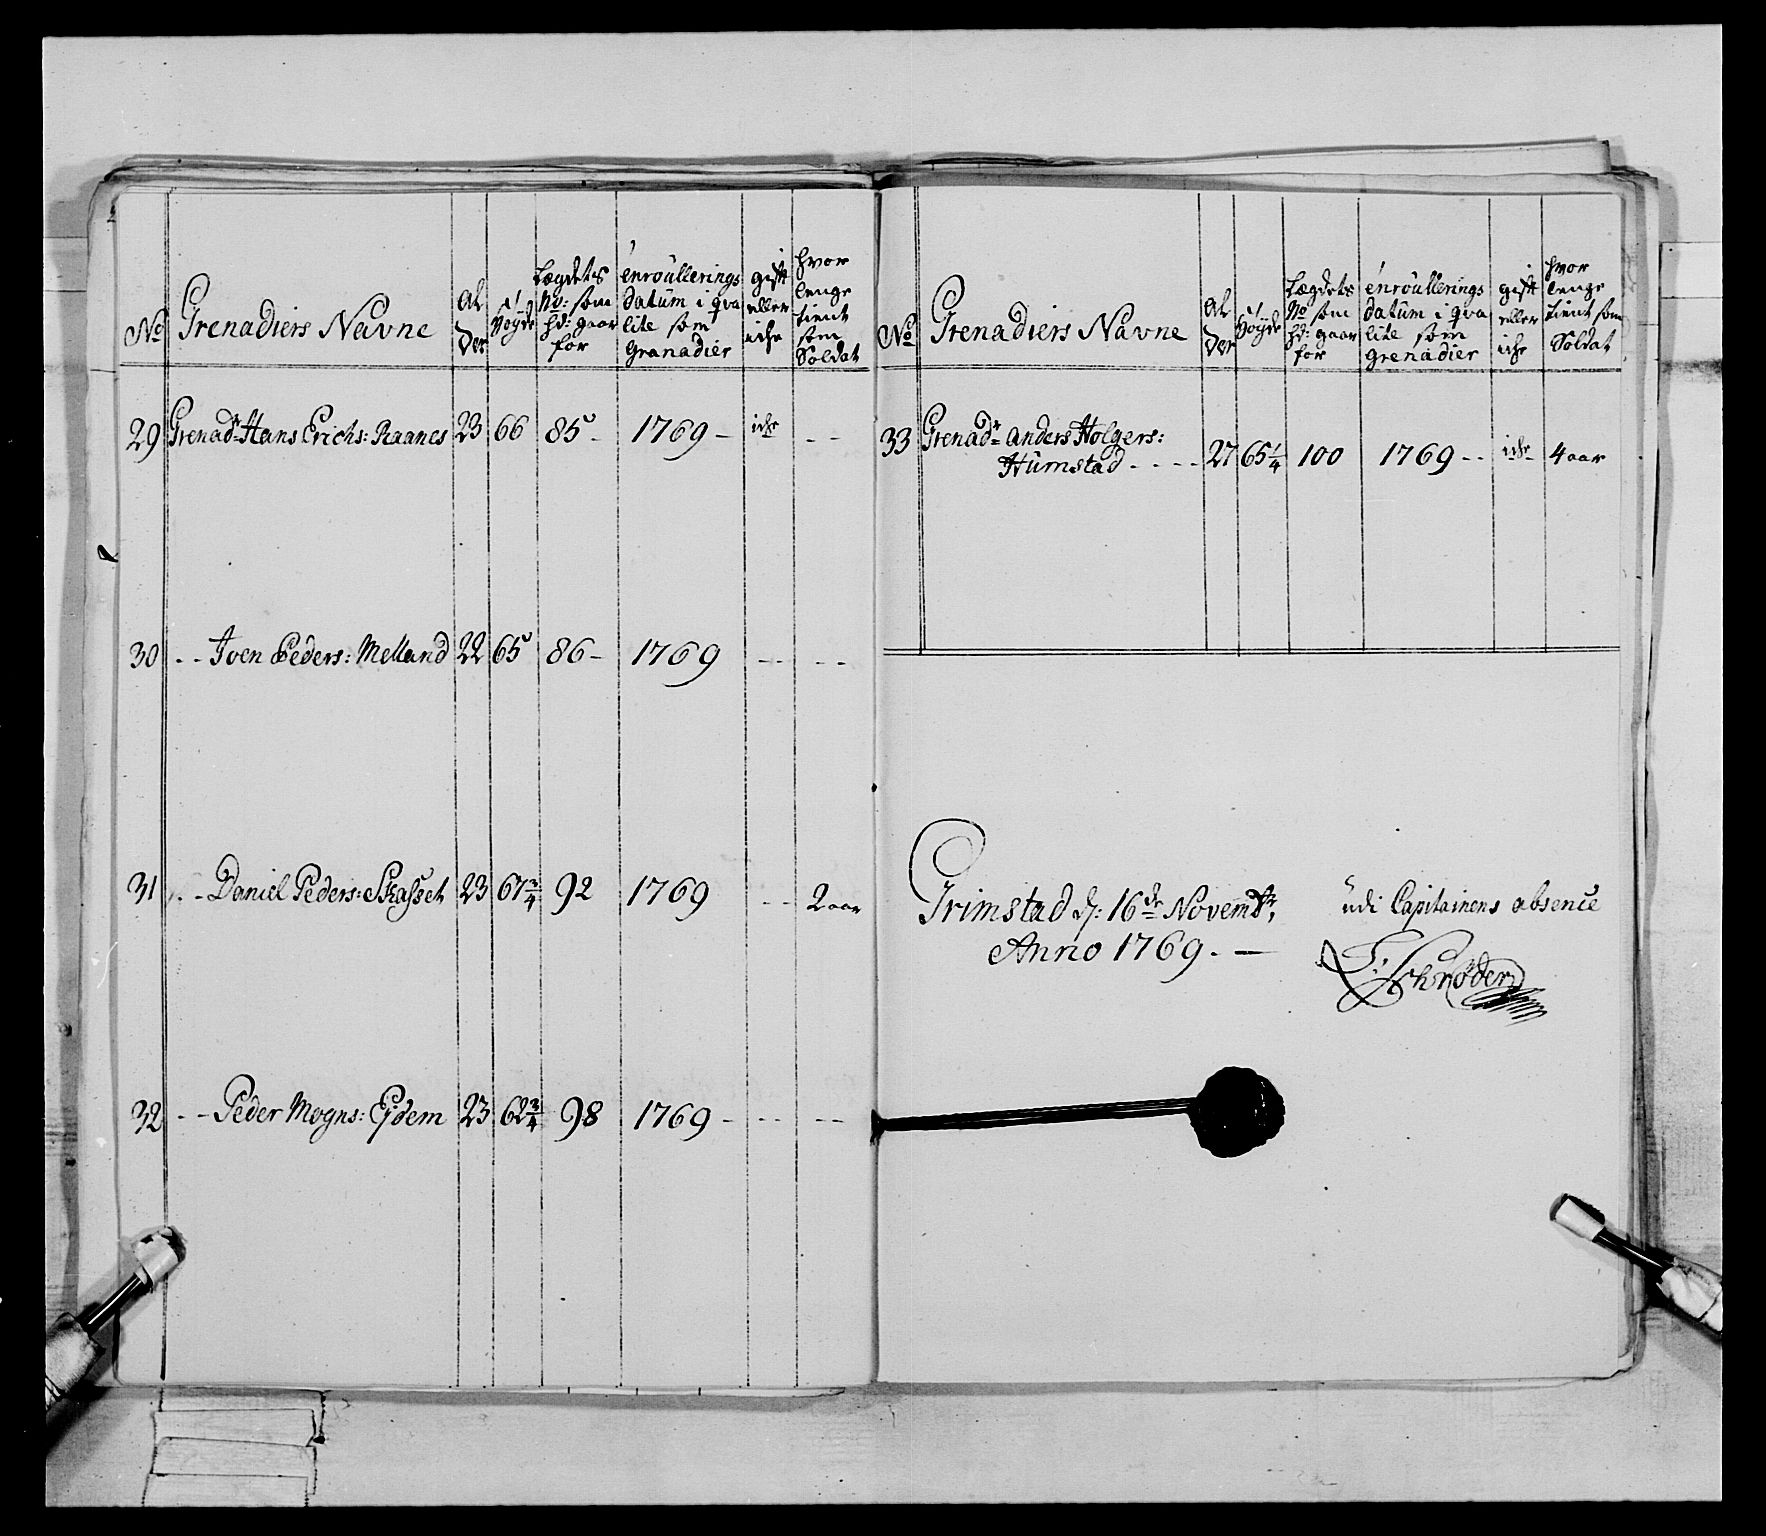 No Grenadiers Navne Alder Høyde Lægdets No: som hd: gaar for enroullerings datum i qvalite som Granadier gift eller iche hvor lenge tient som Soldat
29 Grenadr Hans Erichs: Raanes 23 66 85 - 1769 - iche - -
30 - - Joen Peders: Melland 22 65 86 - 1769 - - - -
31 - - Daniel Peders: Skasset 23 67 3/4 92 1769 - - 2 aar
32 - - Peder Mogns: Eidem 23 62 3/4 98 1769 - - - - -
No Grenadiers Navne Alder Høyde Lægdets No som hd: gaar for enroullerings datum i qvalite som grenadier gift eller iche hvor lenge tient som Soldat
33 Grenadr Anders Holgers:
Humstad - - - - 27 65 1/4 100 1769 - - iche 4 aar
Grimstad d: 16de Novembr,
Anno 1769. -
udi Capitainens absence
Schrøder